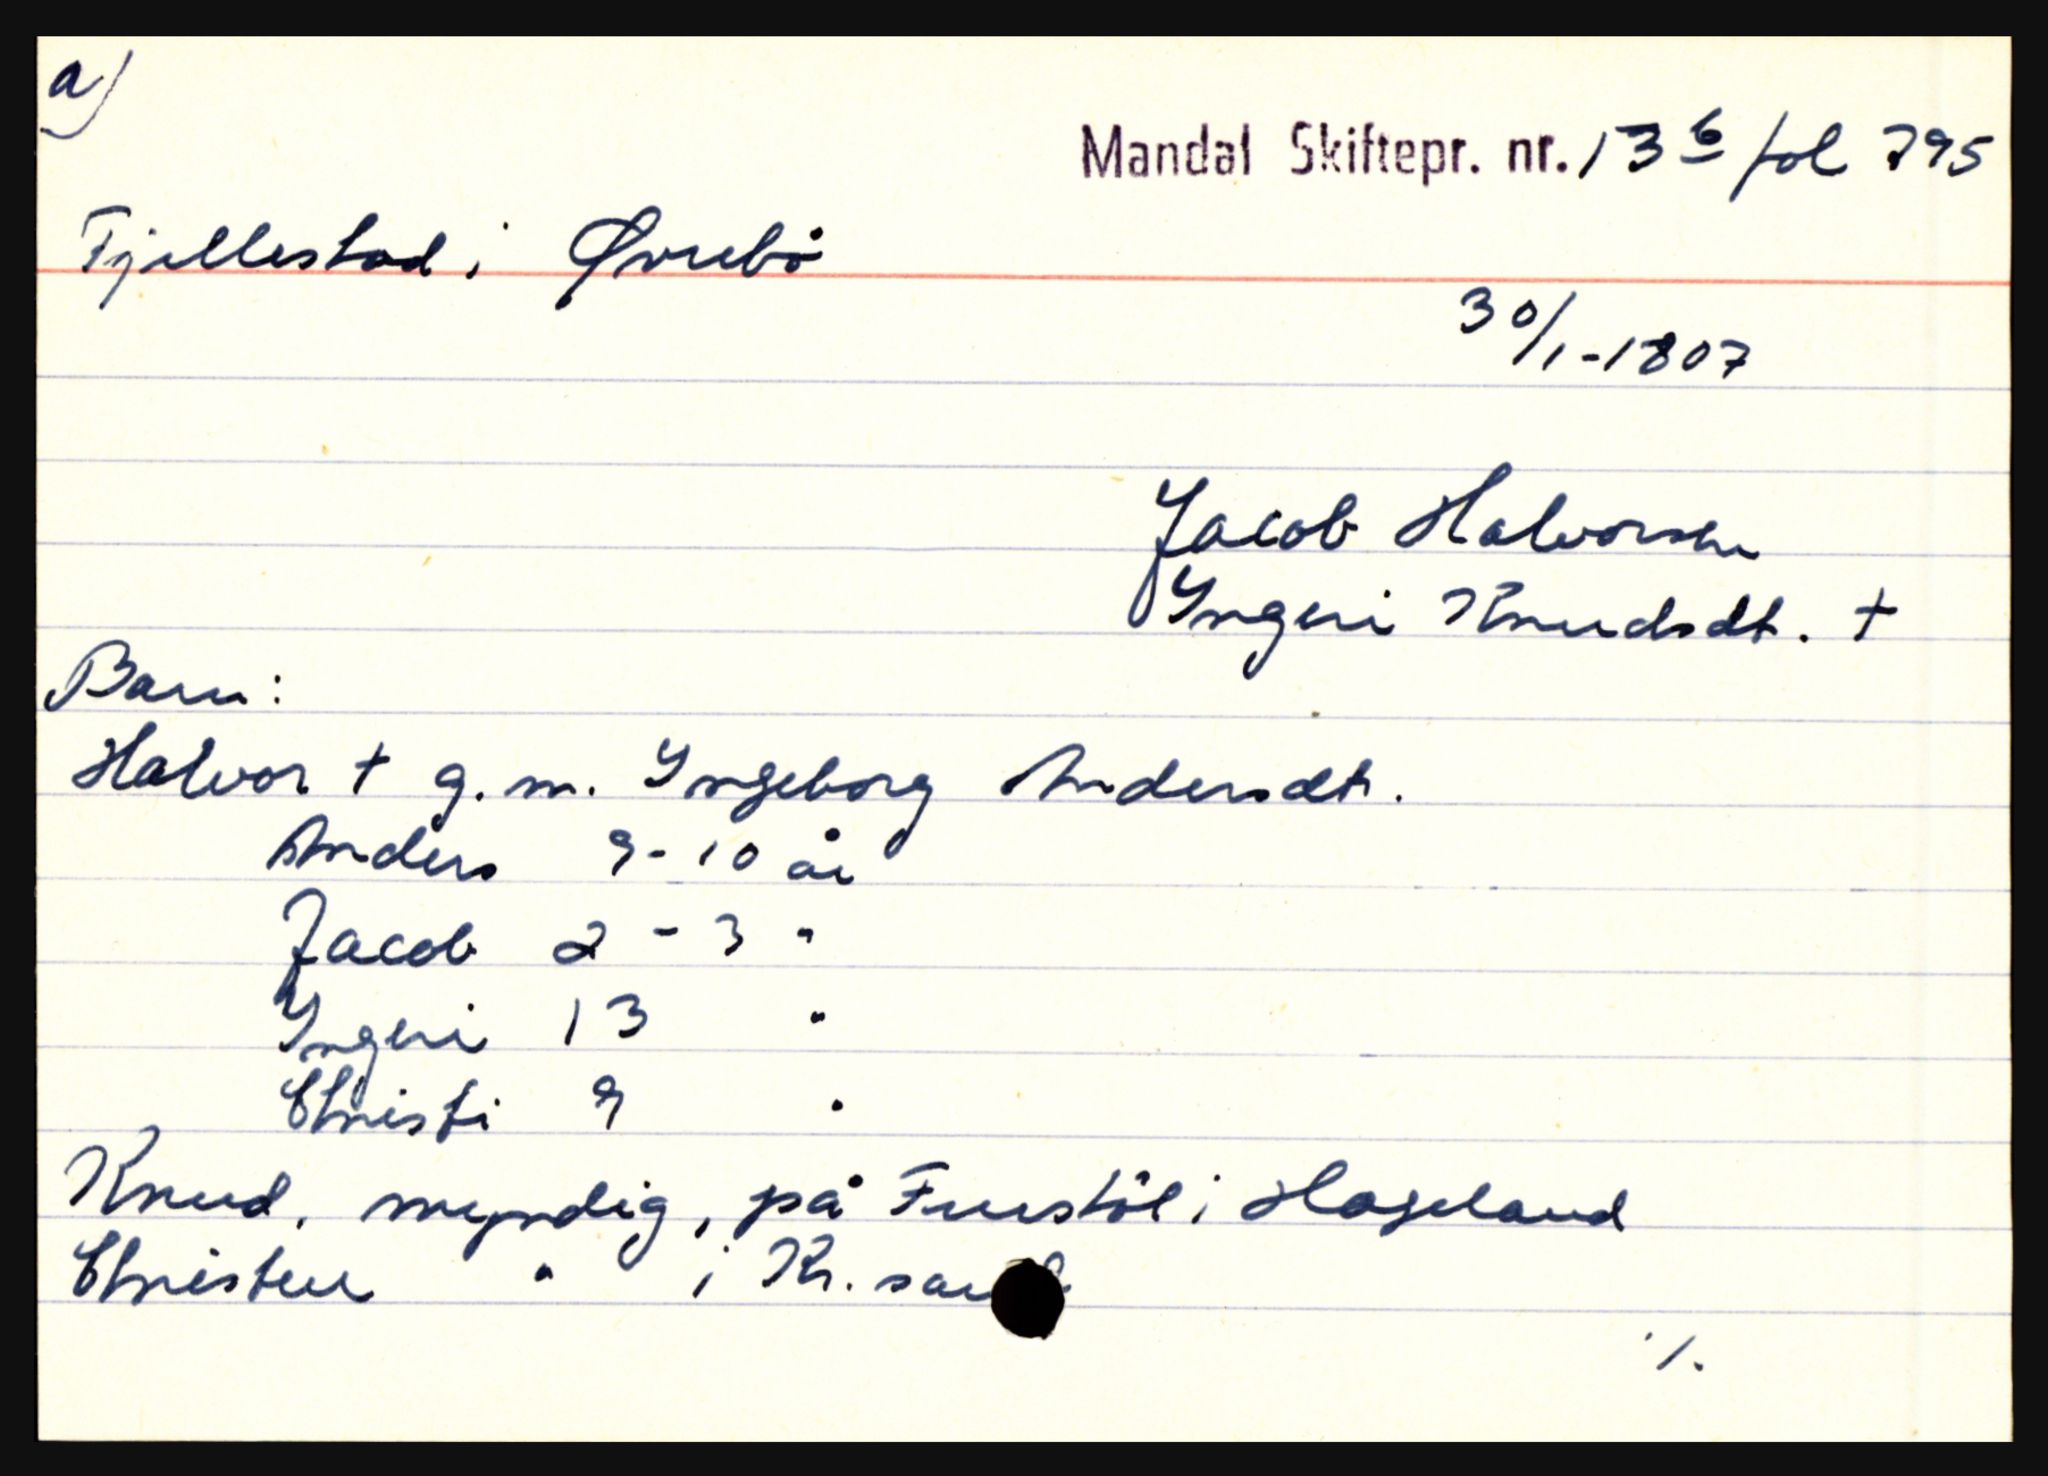 a)
Mandal Skiftepr. nr. 13 b fol 795
Fjellestad i Øvrebö
30/1-1807
Jacob Halvorsen
Yngeri Knudsdt. +
Barn:
Halvor + g.m. Yngeborg Andersdt.
Anders 9-10 år
Jacob 2-3 "
Yngeri 13 "
Christi 9 "
Knud, myndig, på Fuestöl i Hageland
Christen " i Kr.sand
./.